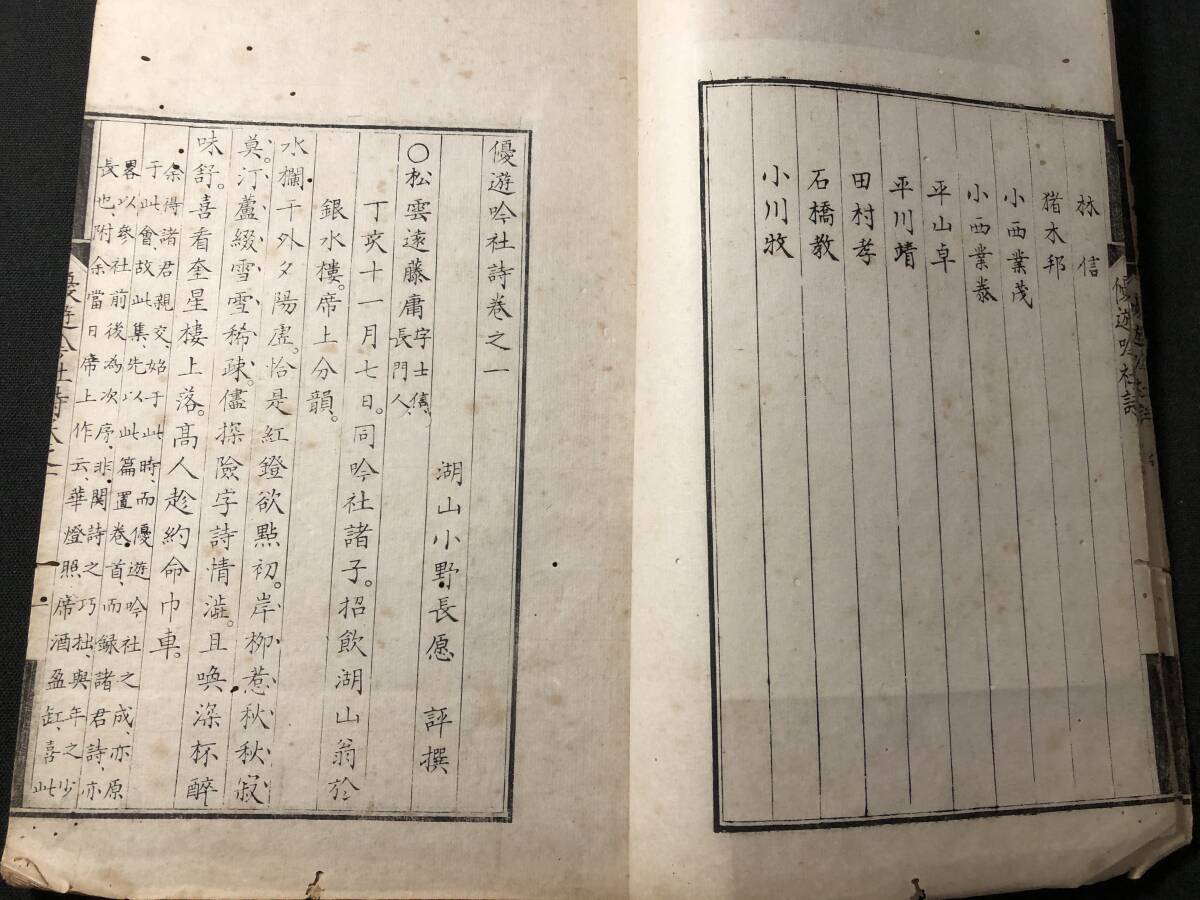 林信
猪木邦
小西業茂
小西業泰
平山卓
平川靖
田村孝
石橋教
小川牧
優遊吟社詩
優遊吟社詩巻之一
湖山小野長愿 評撰
○松雲遠藤庸字士 長門人、
丁亥十一月七日。同吟社諸子。招飲湖山翁於
銀水樓。席上分韻。
水欄干外夕陽虚。恰是紅鐙欲點初。岸柳惹秋秋寂
莫。汀蘆綴雪雪稀疎。儘探險字詩情澁。且喚深杯醉
味舒。喜看奎星樓上落。高人趁約命巾車。
余得諸君親交、始于此時、而優遊吟社之成、亦原
于此會、故此集、先以此篇置卷首、而録諸君詩、亦
畧以參社前後為次序、非関詩之巧拙與年之少
長也、附余當日席上作云、華燈照席酒盈缸、喜此